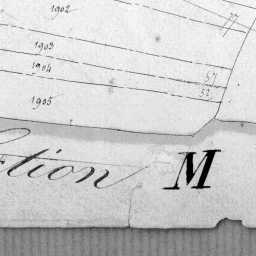 1902
77
1903
1904
57
52
1905
ction M